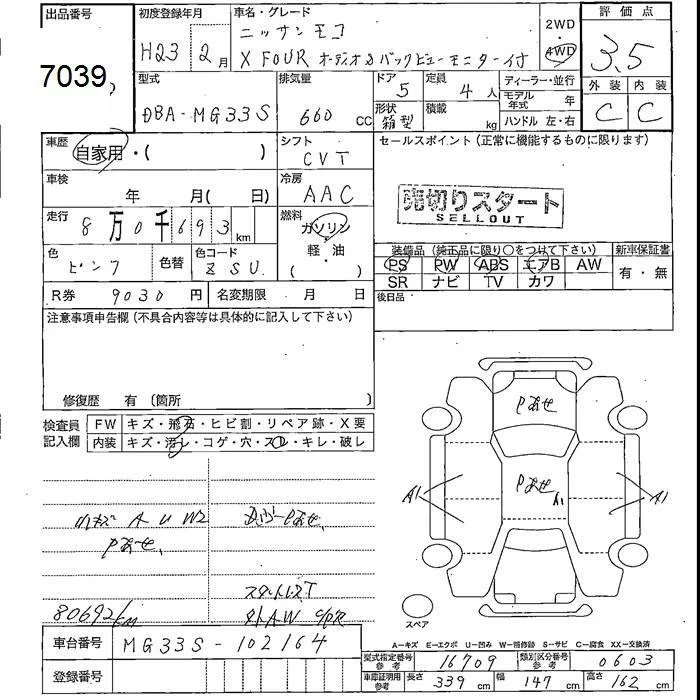 出品番号
7039
初度登録年月
H23 2月
車名・グレード
ニッサン モコ
X FOUR オーディオ&バックビューモニター付
2WD
4WD
評価点
3.5
外装 内装
C C
型式
DBA-MG33S
排気量
660 cc
ドア 5
定員 4人
形状 箱型
積載 kg
ディーラー・並行
モデル年式 年
ハンドル 左・右
車歴
自家用・( )
シフト
CVT
セールスポイント(正常に機能するものに限ります)
売切りスタート
SELLOUT
車検
年 月( 日)
冷房
AAC
走行
8万0千693km
燃料
ガソリン
軽・油
( )
色
ピンク
色替
色コード
ZSU
装備品(純正品に限り○をつけて下さい)
PS PW ABS エアB AW
SR ナビ TV カワ
新車保証書
有・無
R券 9030円
名変期限 月 日
後日品
注意事項申告欄(不具合内容等は具体的に記入して下さい)
修復歴 有〔箇所 〕
検査員記入欄
FW キズ・飛石・ヒビ割・リペア跡・X要
内装 キズ・汚レ・コゲ・穴・スレ・キレ・破レ
A U W2
Pあせ
スタットレスT
80692km
Pあせ
Pあせ
A1
A1
A1
スペア
A-キズ E-エクボ U-凹み W-補修跡 S-サビ C-腐食 XX-交換済
車台番号 MG33S-102164
登録番号
型式指定番号参考 16709
類別区分番号参考 0603
車庫証明用参考 長さ 339cm 幅 147cm 高さ 162cm